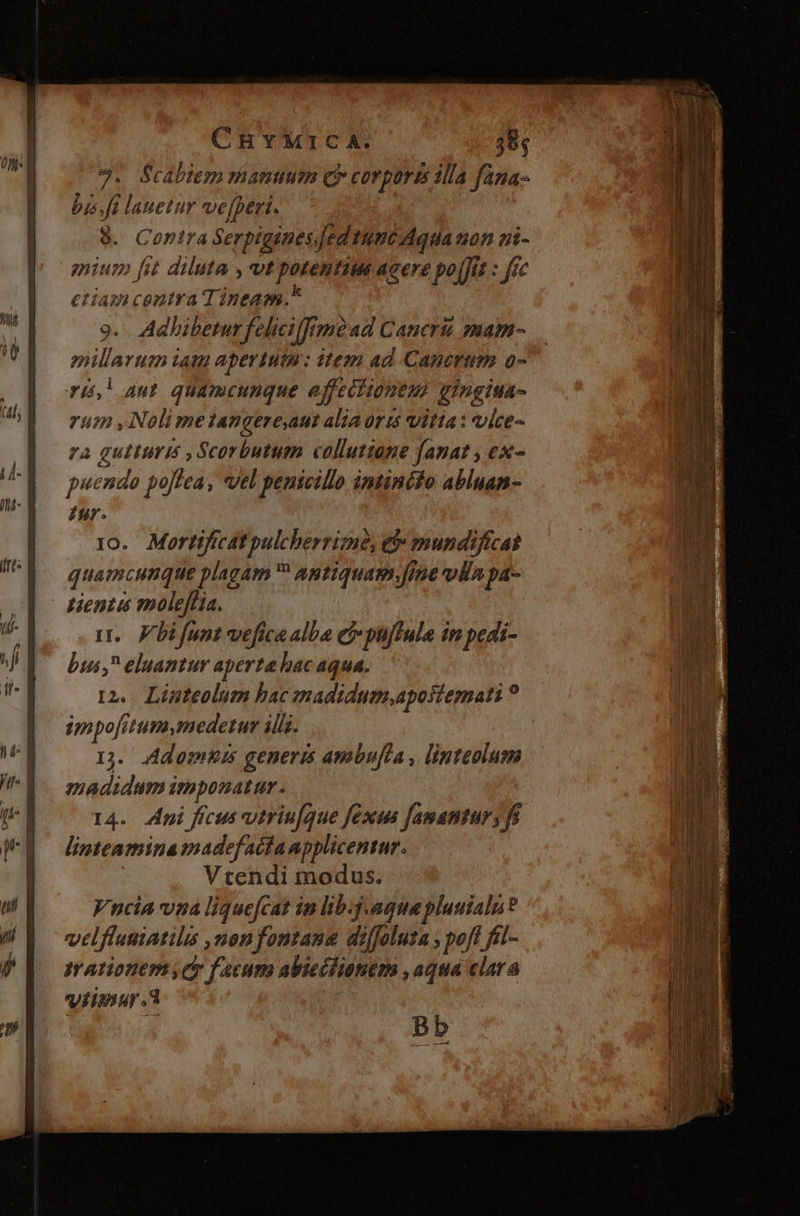 CHYMICA. 385
7. Scabiem manuum & corporis illa ſana-
bis, ſi lauetur veſperi.
8. Contra Serpigines, ſed tunc Aqua non ni-
mium ſit diluta, vt potentius agere poſſit: ſic
etiam contra Tineam.k
9. Adhibetur feliciſſimè ad Cancrũ mam-
millarum iam apertum: item ad Cancrum o-
ris,l aut quamcunque affectionem gingiua-
rum, Noli me tangere, aut alia oris vitia: vlce-
ra gutturis, Scorbutum collutione ſanat, ex-
puendo poſtea, vel penicillo intincto abluan-
tur.
10. Mortificat pulcherrimè, & mundificat
quamcunque plagam m antiquam, ſine vlla pa-
tientis moleſtia.
11. Vbi ſunt veſicæ albæ & puſtulæ in pedi-
bus,n eluantur apertæ hac aqua.
12. Linteolum hac madidum, apoſtemati o
impoſitum, medetur illi.
13. Ad omnis generis ambuſta, linteolum
madidum imponatur.
14. Ani ficus vtriuſque ſexus ſanantur, ſi
linteamina madefacta applicentur.
Vtendi modus.
Vncia vna liqueſcat in lib.j. aquæ pluuialis p
vel fluuiatilis, non fontanæ diſſoluta, poſt fil-
trationem, & fæcum abiectionem, aqua clara
vtimur.q
Bb